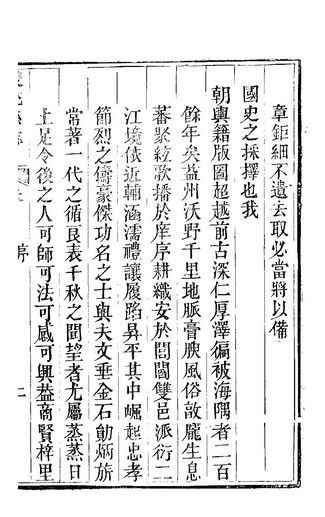 章鉅細不遺去取必當將以備
國史之採擇也我
朝輿籍版圖超越前古深仁厚澤徧被海隅者二百
餘年矣益州沃野千里地脈膏腴風俗敦龐生息
蕃聚絃歌播於庠序耕織安於閭閻雙邑派衍二
江境依近輔涵濡禮讓履蹈昇平其中崛起忠孝
節烈之儔豪傑功名之士與夫文垂金石勛炳旂
常著一代之循良表千秋之閭望者尤屬蒸蒸日
上足令後之人可師可法可感可興葢商賢梓里
序
二